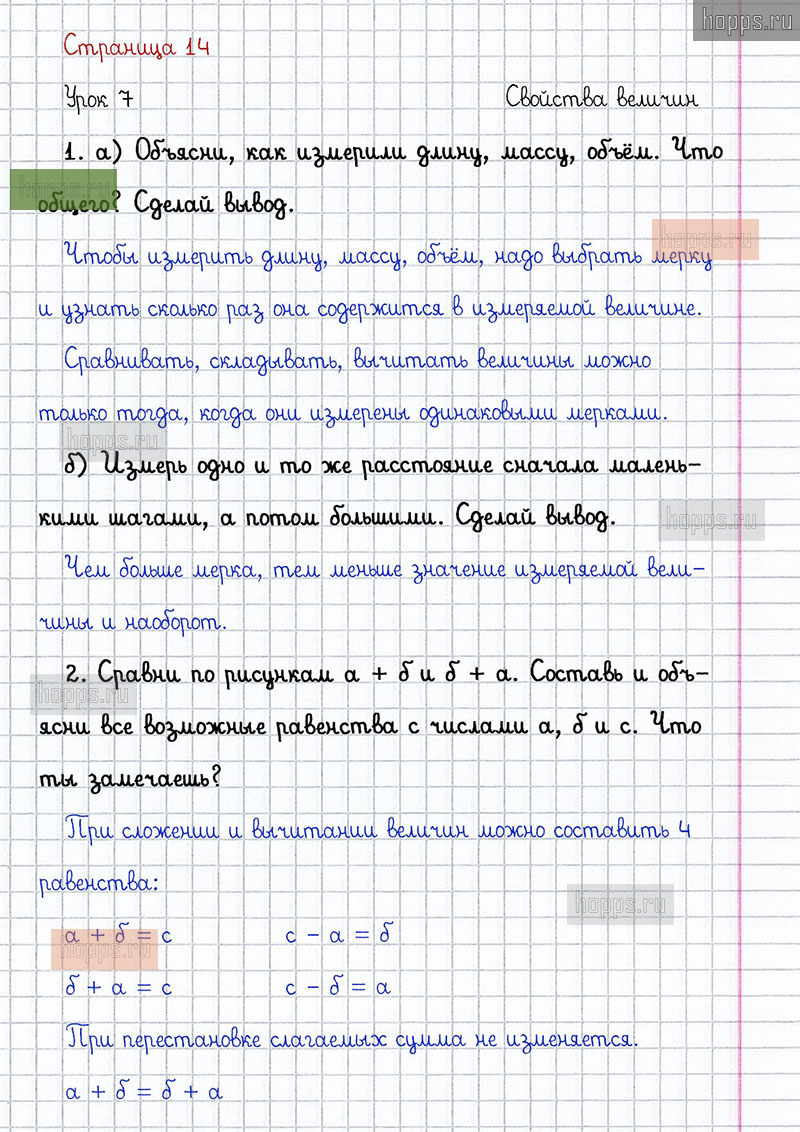 hopps.ru
Страница 14
Урок 7 Свойства величин
1. а) Объясни, как измерили длину, массу, объём. Что
hopps.ru
общего? Сделай вывод.
hopps.ru
Чтобы измерить длину, массу, объём, надо выбрать мерку
и узнать сколько раз она содержится в измеряемой величине.
Сравнивать, складывать, вычитать величины можно
только тогда, когда они измерены одинаковыми мерками.
hopps.ru
б) Измерь одно и то же расстояние сначала малень-
кими шагами, а потом большими. Сделай вывод.
hopps.ru
Чем больше мерка, тем меньше значение измеряемой вели-
чины и наоборот.
2. Сравни по рисункам а + б и б + а. Составь и объ-
hopps.ru
ясни все возможные равенства с числами а, б и с. Что
ты замечаешь?
При сложении и вычитании величин можно составить 4
равенства:
hopps.ru
а + б = с с - а = б
hopps.ru
б + а = с с - б = а
При перестановке слагаемых сумма не изменяется.
а + б = б + а